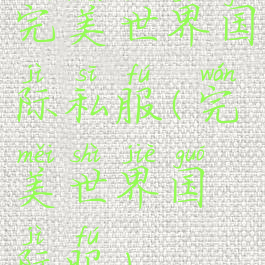 完美世界国
jì sī fú wán
际私服(完
měi shì jiè guó
美世界国
jì fú
际服)